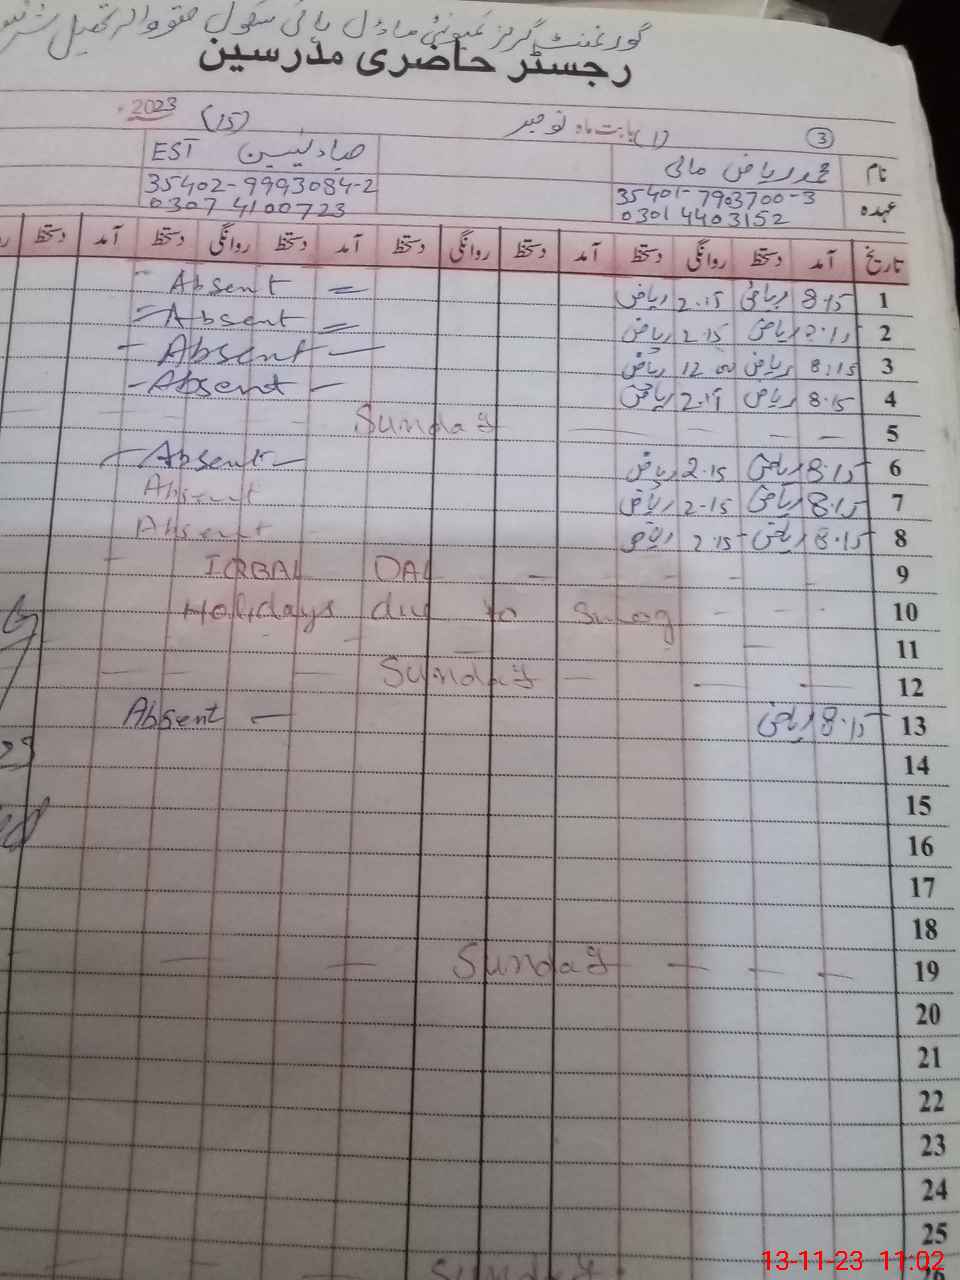 گورنمنٹ گرلز کمیونٹی ماڈل ہائی سکول
رجسٹر حاضری مدرسین
③ (1) بابت ماہ نومبر (15) 2023
نام محمد ریاض مالی EST
عہدہ 35401-7903700-3 35402-9993084-2
0301 4403152 0307 4100723
تاریخ آمد دستخط روانگی دستخط آمد دستخط روانگی دستخط آمد دستخط روانگی دستخط آمد دستخط
1 8·15 ریاض 2·15 ریاض = Absent
2 ریاض 2·15 ریاض = Absent =
3 8:15 ریاض 12 ریاض - Absent -
4 8·15 ریاض ریاض - Absent -
5 Sunday
6 8·15 ریاض 2·15 ریاض - Absent -
7 8·15 ریاض 2·15 ریاض Absent
8 8·15 ریاض 2·15 Absent
9 IQBAL DAY
10 Holidays due to Smog
11
12 Sunday
13 8·15 ریاض Absent -
14
15
16
17
18
19 Sunday
20
21
22
23
24
25
26 Sunday
13-11-23 11:02